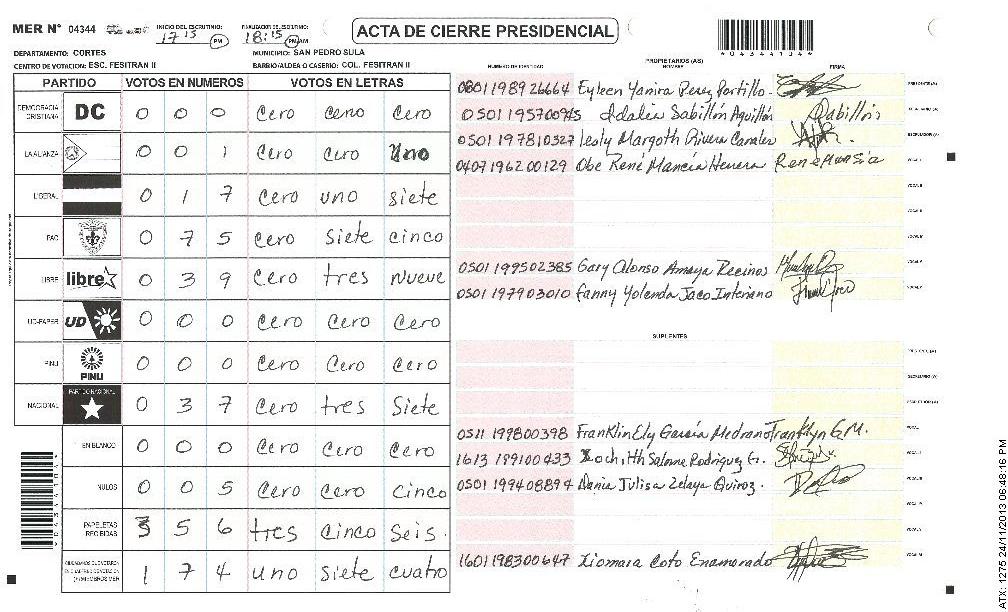 MER N° 04344
INICIO DEL ESCRUTINIO: 17 15 PM
FINALIZACION DEL ESCRUTINIO: 18:15 PM AM
ACTA DE CIERRE PRESIDENCIAL
404344134
DEPARTAMENTO: CORTES
MUNICIPIO: SAN PEDRO SULA
CENTRO DE VOTACION: ESC. FESITRAN II
BARRIO/ALDEA O CASERIO: COL. FESITRAN II
PARTIDO VOTOS EN NUMEROS VOTOS EN LETRAS
DEMOCRACIA CRISTIANA DC 0 0 0 Cero Cero Cero
LA ALIANZA 0 0 1 Cero Cero Uno
LIBERAL 0 1 7 Cero uno siete
PAC 0 7 5 Cero siete cinco
LIBRE libre 0 3 9 Cero tres Nueve
UD-FAPER UD 0 0 0 Cero Cero Cero
PINU PINU 0 0 0 Cero Cero Cero
NACIONAL PARTIDO NACIONAL 0 3 7 Cero tres Siete
EN BLANCO 0 0 0 Cero Cero Cero
NULOS 0 0 5 Cero Cero Cinco
PAPELETAS RECIBIDAS 3 5 6 tres cinco Seis.
1 7 4 uno siete cuatro
PROPIETARIOS (AS)
NUMERO DE IDENTIDAD NOMBRE FIRMA
0801198926664 Eyleen Yamira Perez Portillo
0501195700945 Idalia Sabillón Aguillón Sabillón
0501197810327 Lesly Margoth Rivera Canales
0407196200129 Obe René Mancía Herrera Rene Mansia
0501199502385 Gary Alonso Amaya Recinos
0501197903010 Fanny Yolenda Jaco Interiano
SUPLENTES
0511199800398 Franklin Ely García Medrano Franklyn G.M.
1613189100433 Xochilth Salome Rodriguez G.
0501199408894 Dania Julisa Zelaya Quiroz.
1601198300647 Xiomara Coto Enamorado
ATX: 1275 24/11/2013 06:48:16 PM